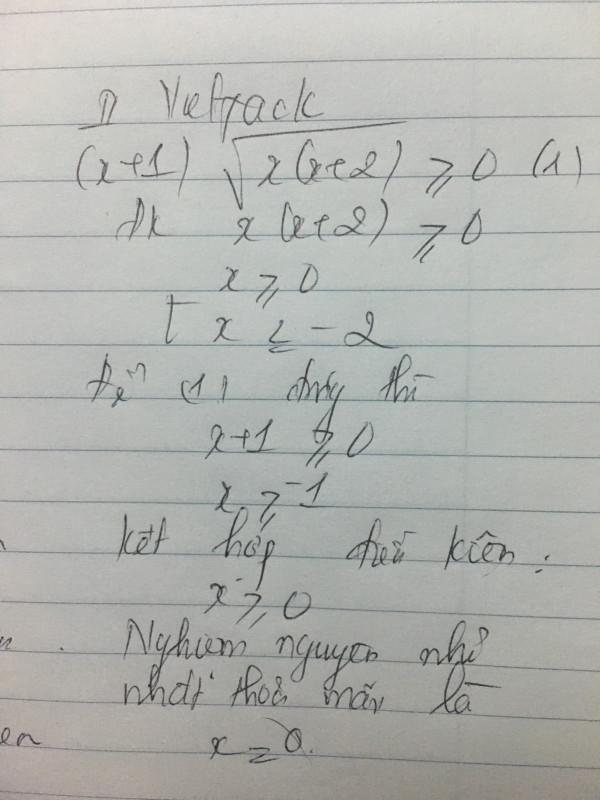 1) Vietjack
(x+1) √x(x+2) ⩾ 0 (1)
đk x(x+2) ⩾ 0
x ⩾ 0
[ x ≤ -2
Để (1) đúng thì
x+1 ⩾ 0
x ⩾ -1
kết hợp điều kiện :
x ⩾ 0
Nghiệm nguyên nhỏ
nhất thoả mãn là
x = 0.